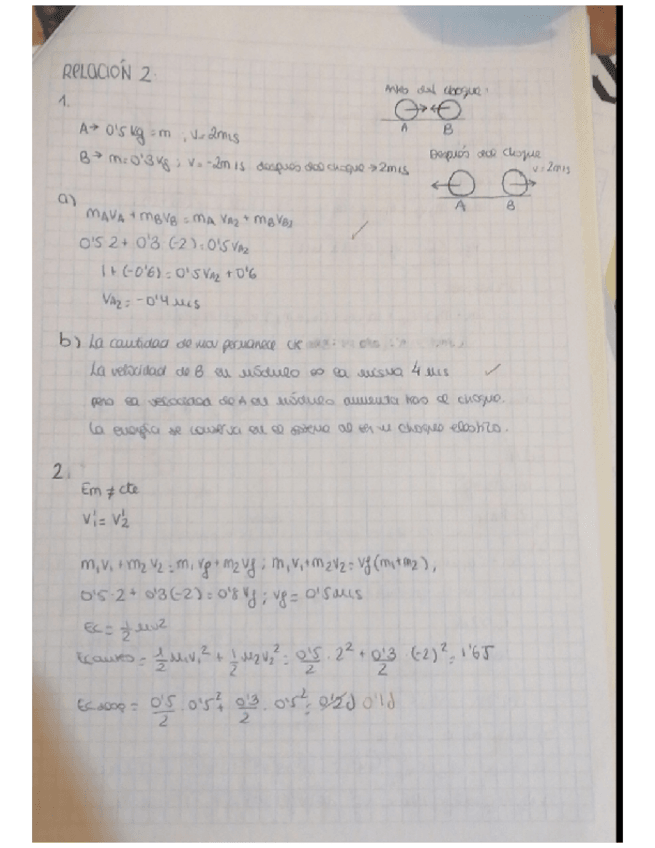 RELACIÓN 2.
1.
Antes del choque:
A B
A → 0'5 kg = m , v = 2m/s
B → m = 0'3 kg ; v = -2m/s después del choque → 2m/s
Después del choque
v = 2m/s
A B
a)
mAVA + mBVB = mA VA2 + mBVB2
0'5·2 + 0'3·(-2) = 0'5VA2
1 + (-0'6) = 0'5VA2 + 0'6
VA2 = -0'4 m/s
b) La cantidad de mov permanece
La velocidad de B en módulo es la misma 4 m/s
pero la velocidad de A en módulo aumenta tras el choque.
La energía se conserva en el sistema al ser un choque elástico.
2.
Em ≠ cte
V1' = V2'
m1v1 + m2v2 = m1vf + m2vf ; m1v1 + m2v2 = vf(m1+m2),
0'5·2 + 0'3(-2) = 0'8 vf ; vf = 0'5m/s
Ec = 1/2 mv²
Ecantes = 1/2 m1v1² + 1/2 m2v2² = 0'5/2 · 2² + 0'3/2 (-2)² = 1'6J
= 0'5/2 · 0'5² + 0'3/2 · 0'5² = 0'1J